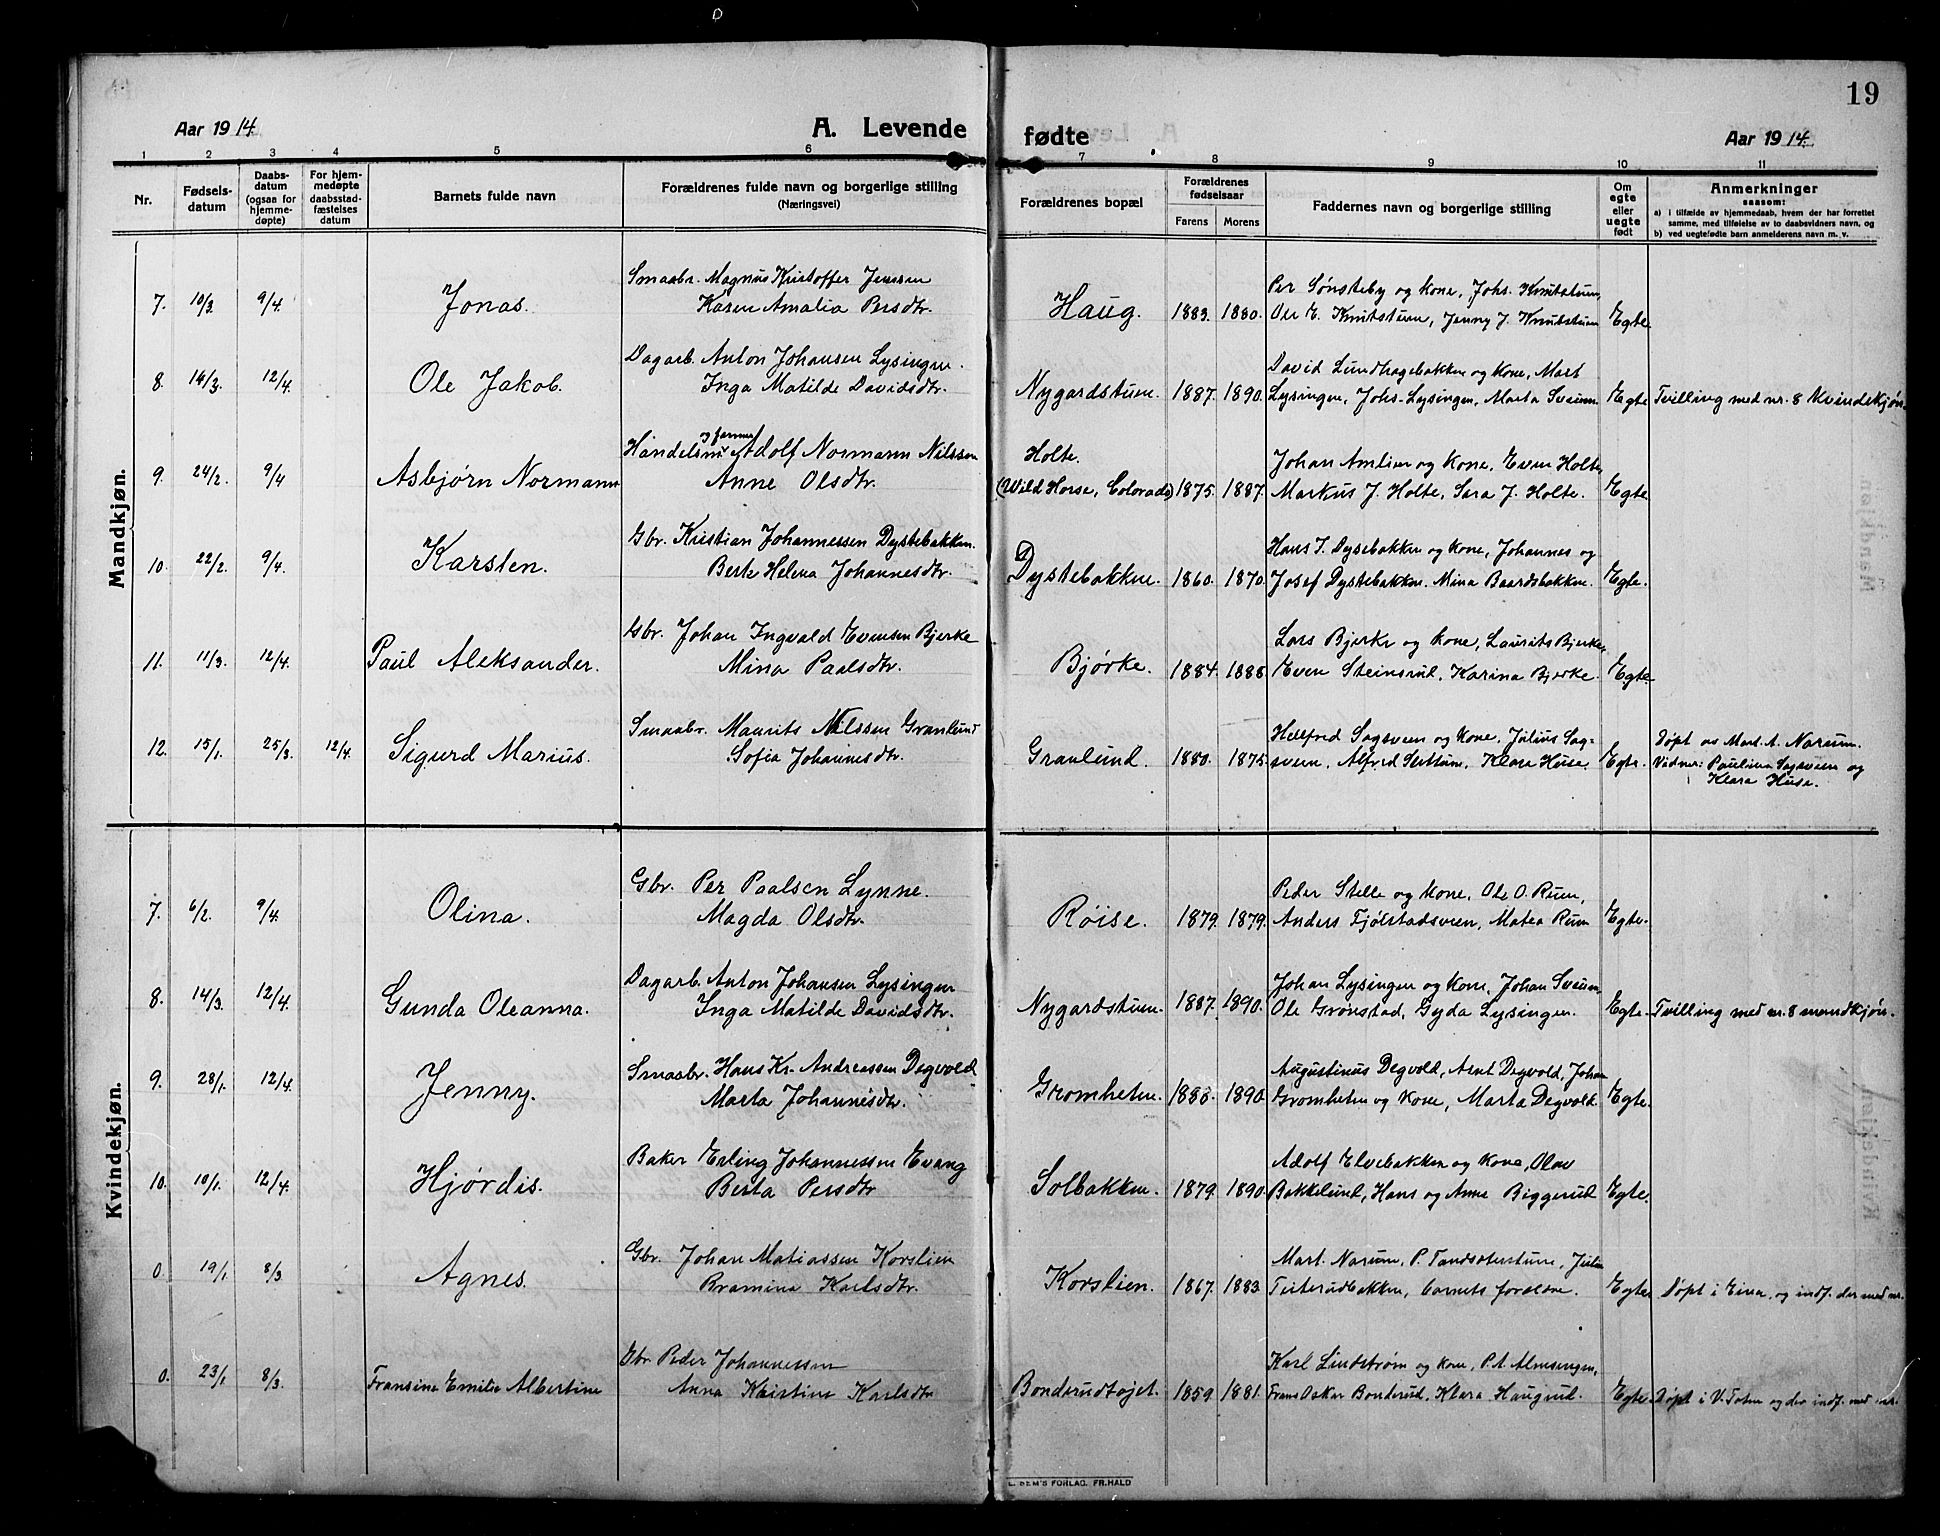 19
Aar 1914.
A. Levende
fødte
Aar 1914.
1 2 3 4 5 6 7 8 9 10 11
Nr.
Fødsels-
datum
Daabs-
datum
(ogsaa for
hjemme-
døpte)
For hjem-
medøpte
daabsstad-
fæstelses
datum
Barnets fulde navn
Forældrenes fulde navn og borgerlige stilling
(Næringsvei)
Forældrenes bopæl
Forældrenes
fødselsaar
Farens Morens
Faddernes navn og borgerlige stilling
Om
egte
eller
uegte
født
Anmerkninger
saasom:
a) i tilfælde av hjemmedaab, hvem der har forrettet
samme, med tilføielse av to daabsvidners navn, og
b) ved uegtefødte barn anmelderens navn m. v.
Mandkjøn.
Smaabr. Magnus Kristoffer Jenssen Per Sønsteby og kone, Johs. Knutstuen,
7. 10/3. 9/4. Jonas. Karen Amalia Persdtr. Haug. 1883. 1880. Ole E. Knutstuen, Jenny J. Knutstuen Egte.
Dagarb. Anton Johansen Lysingen. David Lundhagebakken og kone, Mart
8. 14/3. 12/4. Ole Jakob. Inga Matilde Davidsdtr. Nygardstuen. 1887. 1890. Lysingen, Johs. Lysingen, Marta Sveum. Egte Tvilling med nr. 8 Kvindekjøn.
og farmer
Handelsm. Adolf Normann Nilssen Holte. Johan Amlien og kone, Even Holte,
9. 24/2. 9/4 Asbjørn Normann Anne Olsdtr. (Wild Horse, Colorado) 1875. 1887. Markus J. Holte, Sara J. Holte. Egte
Gbr. Kristian Johannessen Dystebakken. Hans J. Dysebakken og kone, Johannes og
10. 22/2. 9/4. Karsten. Berte Helena Johannesdtr. Dystebakken. 1860. 1870. Josef Dystebakken. Mina Baardsbakken. Egte.
Gbr. Johan Ingvald Evensen Bjerke Lars Bjerke og kone, Laurits Bjerke,
11. 11/3. 12/4. Paul Aleksander. Mina Paalsdtr. Bjørke. 1884. 1888. Even Steinsrud, Karina Bjerke. Egte
Smaabr. Maurits Nilssen Granlund Helfred Sagsveen og kone, Julius Sag- Døpt av Mart. A. Narum.
12. 15/1. 25/3. 12/4. Sigurd Marius. Sofia Johannesdtr. Granlund. 1880. 1875. sveen, Alfred Slettum, Klara Huse. Egte. Vidner: Paulina Sagsveen og
Klara Huse.
Kvindekjøn.
Gbr. Per Paalsen Lynne. Peder Stelle og kone, Ole O. Ruen,
7. 6/2. 9/4. Olina. Magda Olsdtr. Røise. 1879. 1879. Anders Fjølstadsveen, Matea Ruen Egte.
Dagarb. Anton Johansen Lysingen Johan Lysingen og kone, Johan Sveum,
8. 14/3. 12/4. Gunda Oleanna. Inga Matilde Davidsdtr. Nygardstuen. 1887. 1890. Ole Grønstad, Gyda Lysingen. Egte. Tvilling med nr. 8 mandkjøn.
Smaabr. Hans Kr. Andreassen Degvold Augustinus Degvold, Arnt Degvold, Johan
9. 28/1. 12/4. Jenny. Marta Johannesdtr. Gromheten. 1888. 1890. Gromheten og kone, Marta Degvold. Egte.
Baker Erling Johannessen Evang Adolf Elvebakken og kone, Olav
10. 10/1. 12/4. Hjørdis. Berta Persdtr Solbakken. 1879. 1890. Bakkelund, Hans og Anne Biggerud. Egte.
Gbr. Johan Matiassen Korslien Mart. Narum, P. Julie
0. 19/1. 8/3. Agnes. Bramina Karlsdtr. Korslien. 1867. 1883. Teterudbakken, barnets forældre. Egte Døpt i Eina, og indf. der med nr.
Gbr. Peder Johannessen Karl Lindstrøm og kone, P.A. Almsengen,
0. 23/1. 8/3. Fransine Emilie Albertine Anna Kristine Karlsdtr Bonderudtøjet. 1859. 1881. Frans Oskar Bonderud, Klara Haugrud. Egte. Døpt i V. Toten og der indf. med nr.
FORLAG. FR.HALD